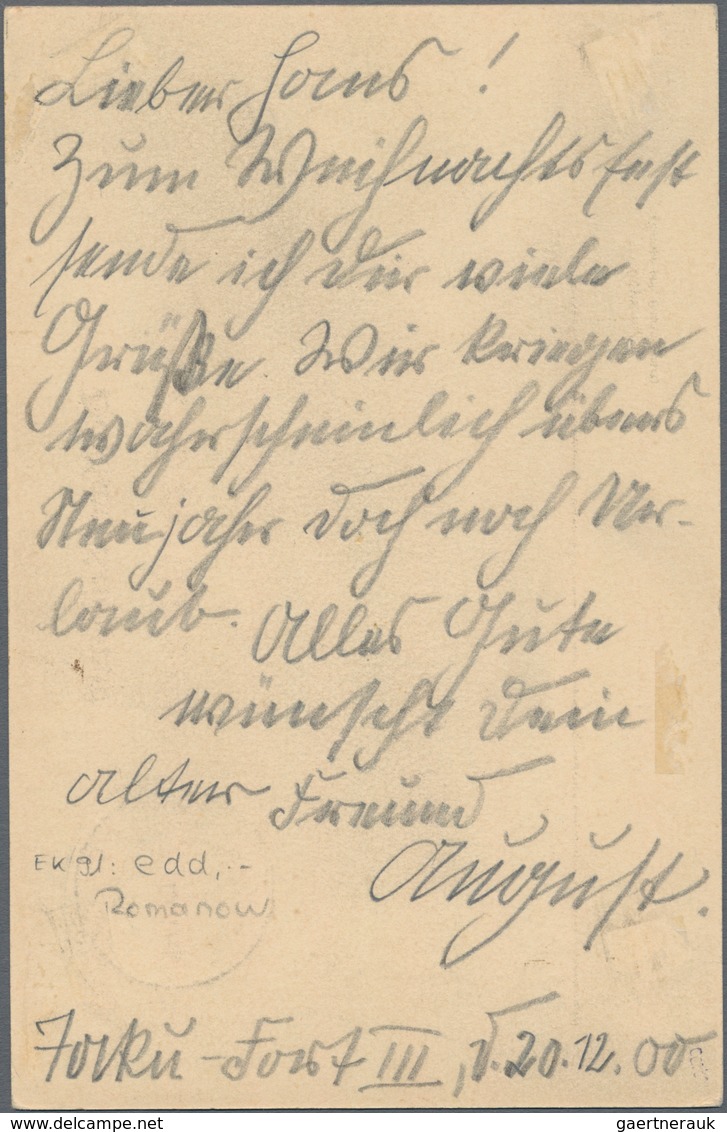 Lieber Hans!
Zum Weihnachtsfest
sende ich Dir viele
Grüße. Wir kriegen
wahrscheinlich übers
Neujahr doch noch Ur-
laub. Alles Gute
wünscht Dein
alter Freund
August.
EK 91: edd,--
Romanow
Taku-Fort III, d. 20.12.00
gaertnerauk